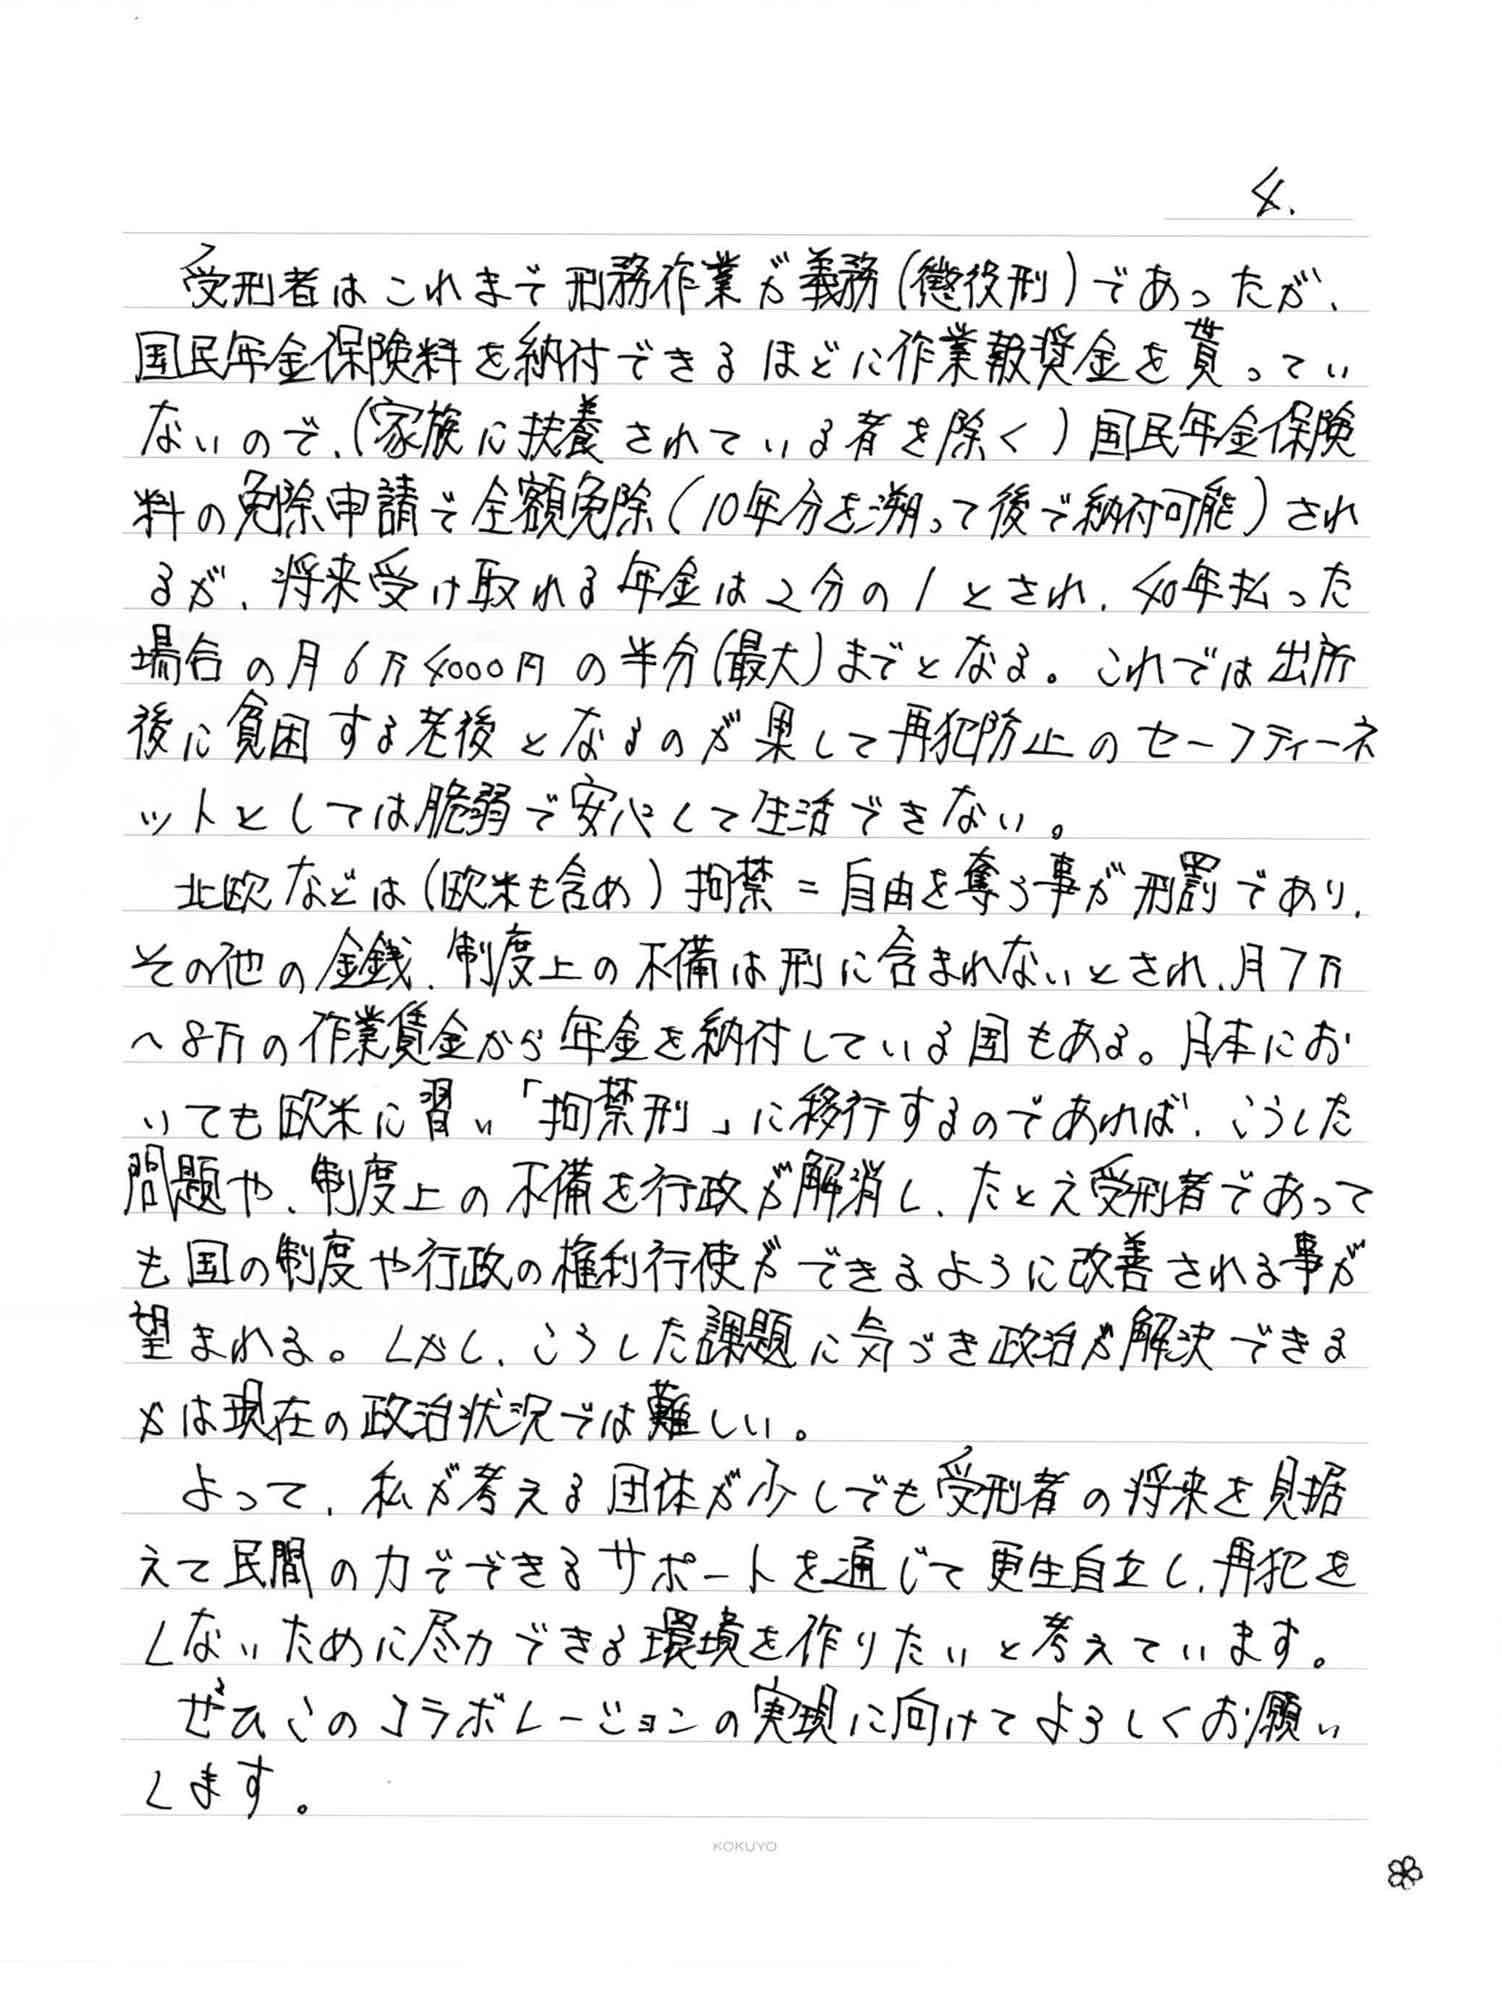 4.
受刑者はこれまで刑務作業が義務(懲役刑)であったが、
国民年金保険料を納付できるほどに作業報奨金を貰ってい
ないので、(家族に扶養されている者を除く)国民年金保険
料の免除申請で全額免除(10年分を遡って後で納付可能)され
るが、将来受け取れる年金は2分の1とされ、40年払った
場合の月6万4000円の半分(最大)までとなる。これでは出所
後に貧困する老後となるのが果して再犯防止のセーフティーネ
ットとしては脆弱で安心して生活できない。
北欧などは(欧米も含め)拘禁=自由を奪う事が刑罰であり、
その他の金銭、制度上の不備は刑に含まれないとされ、月7万
~8万の作業賃金から年金を納付している国もある。日本にお
いても欧米に習い「拘禁刑」に移行するのであれば、こうした
問題や、制度上の不備を行政が解消し、たとえ受刑者であって
も国の制度や行政の権利行使ができるように改善される事が
望まれる。しかし、こうした課題に気づき政治が解決できる
かは現在の政治状況では難しい。
よって、私が考える団体が少しでも受刑者の将来を見据
えて民間の力でできるサポートを通じて更生自立し、再犯を
しないために尽力できる環境を作りたいと考えています。
ぜひこのコラボレーションの実現に向けてよろしくお願い
します。
KOKUYO